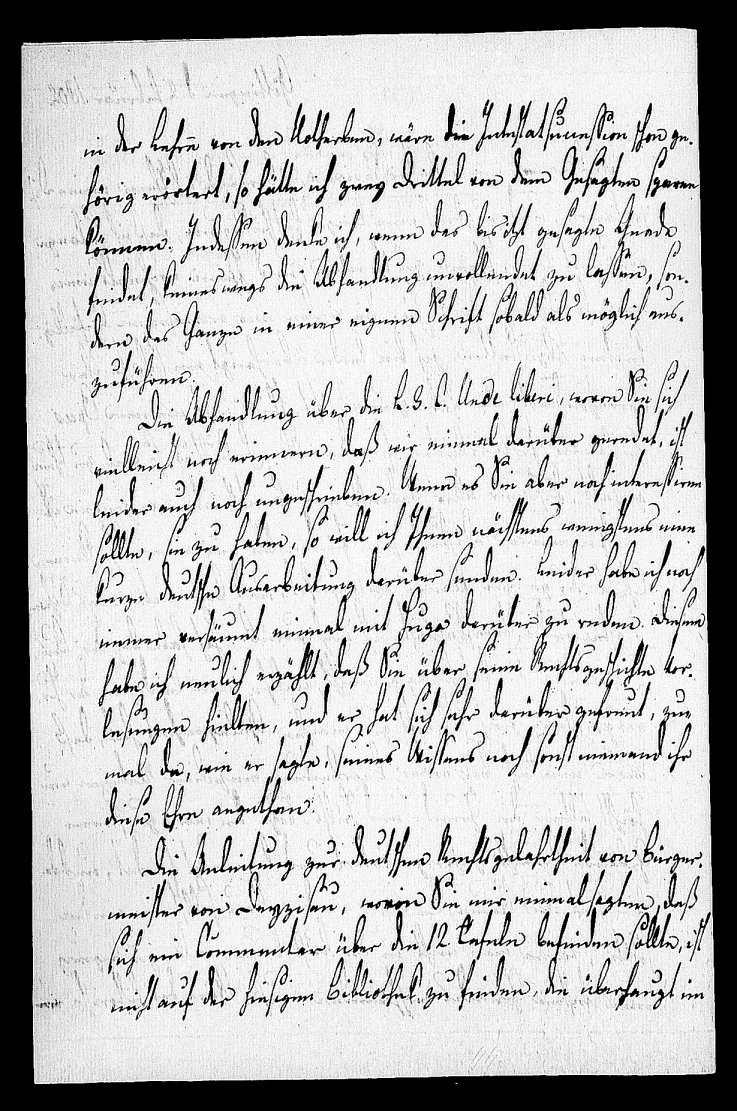 in der Lehre von den Notherben, wäre die Intestatsuccession schon ge-
hörig erörtert, so hätte ich zwey Drittel von dem Gesagten sparen
können. Indessen denke ich, wenn das bis itzt gesagte Gnade
findet, keineswegs die Abhandlung unvollendet zu lassen, son-
dern das Ganze in einer eignen Schrift sobald als möglich aus-
zuführen.
Die Abhandlung über die L. 3. C. Unde liberi, wovon Sie sich
vielleicht noch erinnern, daß wir einmal darüber geredet, ist
leider auch noch ungeschrieben. Wenn es Sie aber noch interessiren
sollte, sie zu haben, so will ich Ihnen nächstens wenigstens eine
kurze deutsche Ausarbeitung darüber senden. Leider habe ich noch
immer versäumt einmal mit Hugo darüber zu reden. Diesem
habe ich neulich erzählt, daß Sie über seine Rechtsgeschichte Vor-
lesungen hielten, und er hat sich sehr darüber gefreut, zu-
mal da, wie er sagte, seines Wissens noch sonst niemand ihr
diese Ehre angethan.
Die Anleitung zur deutschen Rechtsgelahrtheit von Bürger-
meister von Deyzisau, wovon Sie mir einmal sagten, daß
sich ein Commentar über die 12 Tafeln befinden sollte, ist
nicht auf der hiesigen Bibliothek zu finden, die überhaupt im